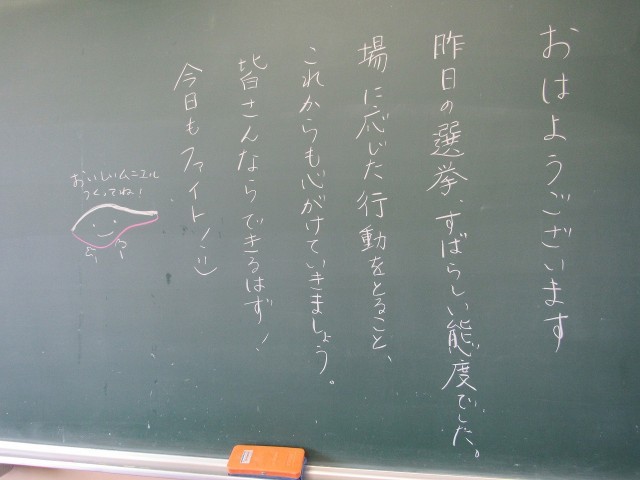 おはようございます
昨日の選挙、すばらしい態度でした。
場に応じた行動をとること、
これからも心がけていきましょう。
皆さんならできるはず!
今日もファイト!:)
おいしいムニエル
つくってね!